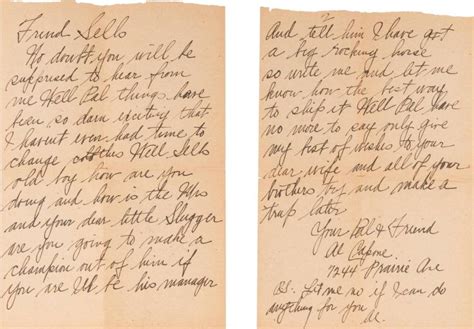 Frind Sells
No doubt you will be
supprised to hear from
me Well Pal things have
been so darn exciting that
I havent even had time to
change clothes Well Sells
old boy how are you
doing and how is the Mrs
and your dear little Slugger
are you going to make a
champion out of him if
you are Ill be his manager
2
And tell him I have got
a big rocking horse
so write me and let me
know how the best way
to ship it Well Pal have
no more to say only give
my best of wishes to your
dear wife and all of your
brothers by and make a
trap later
Your Pal & Friend
Al Capone.
7244 Prairie Ave
PS. Let me no if I can do
anything for you
Al.